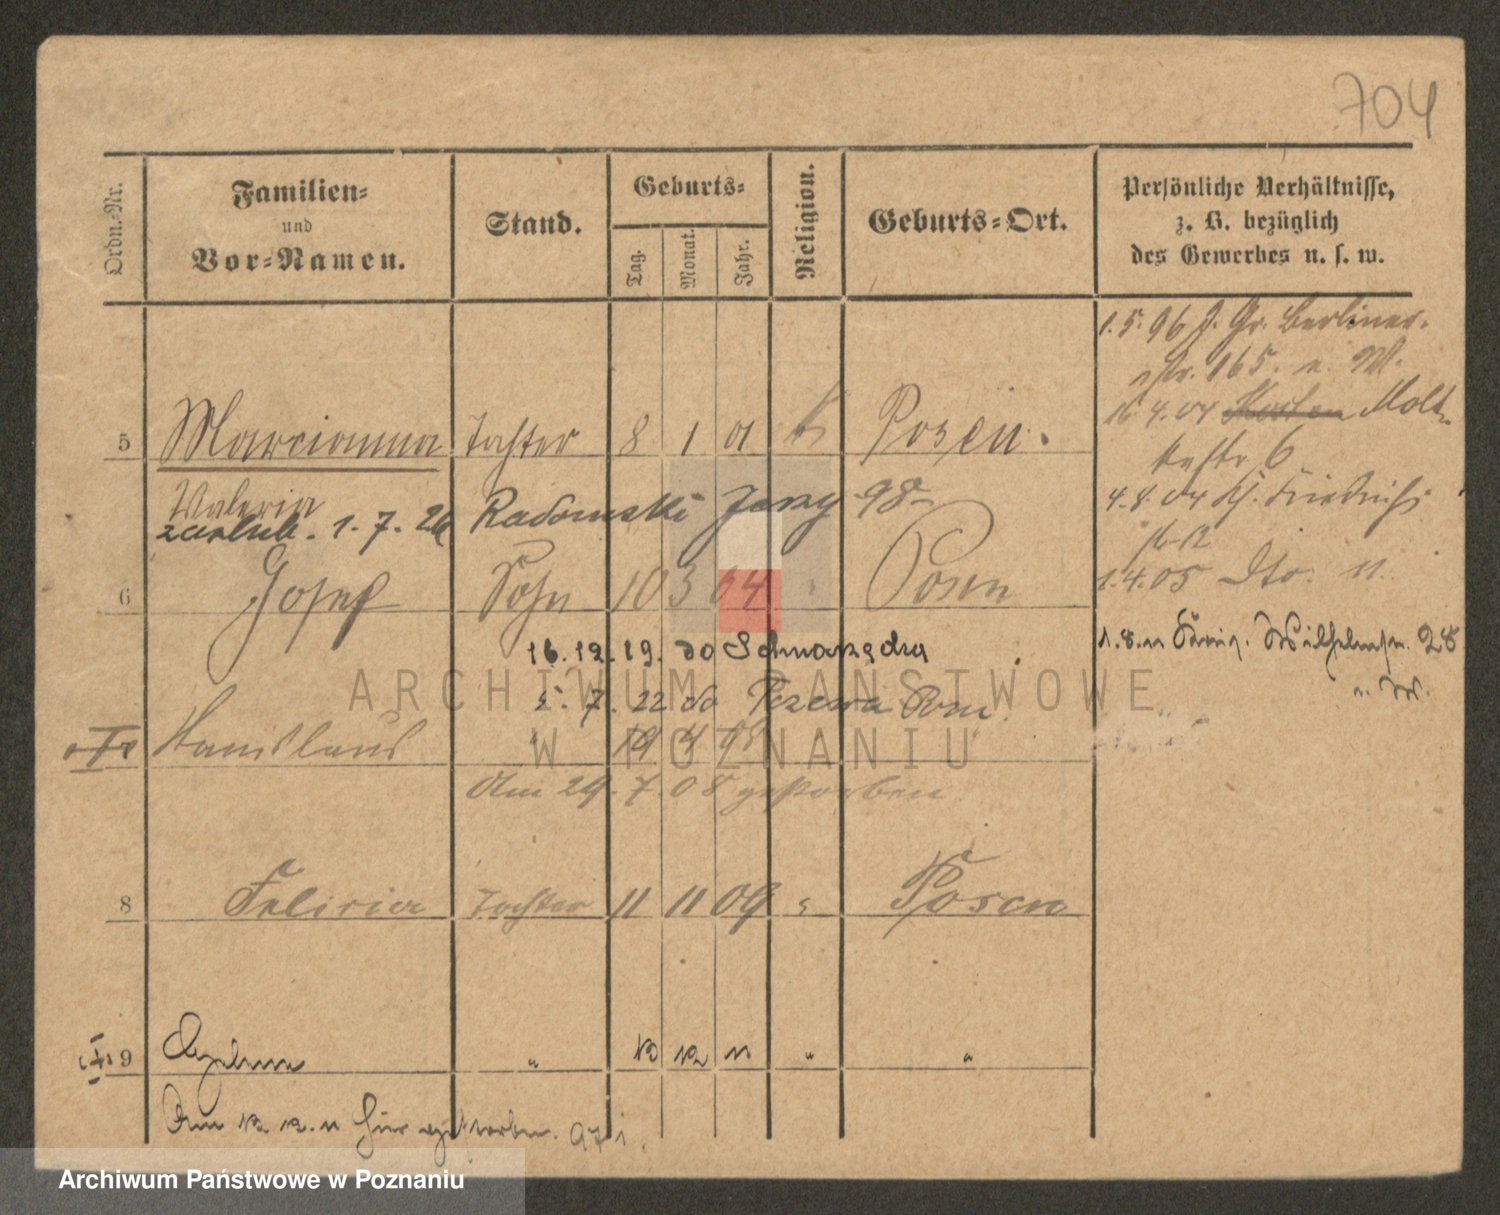 704
Ordn.-Nr.
Familien-
und
Vor-Namen.
Stand.
Geburts-
Tag.
Monat.
Jahr.
Religion.
Geburts-Ort.
Persönliche Verhältnisse,
z. B. bezüglich
des Gewerbes u. s. w.
1.5.96 J. Gr. Berliner-
str. 165. n. W.
16 4.04 Molt-
kestr 6
5 Marcianna Tochter 8 1 01 k Posen.
Valeria
4.8.04 Friedrichs
zaślub. 1.7.26 Radomski Jerzy 98
6 Josef Sohn 10 3 04 Posen
1.4.05 Dto. 11.
16.12.19. do
1.8.11 Wilhelmstr. 28
5.7.22 do
Stanislaus " 19 4 " "
Am 29.7.08 gestorben
8 Felicia Tochter 11 11 09 " Posen
9 " 12 12 11 " "
Am 12 12. 11 hier gestorben.
ARCHIWUM PAŃSTWOWE
W POZNANIU
Archiwum Państwowe w Poznaniu